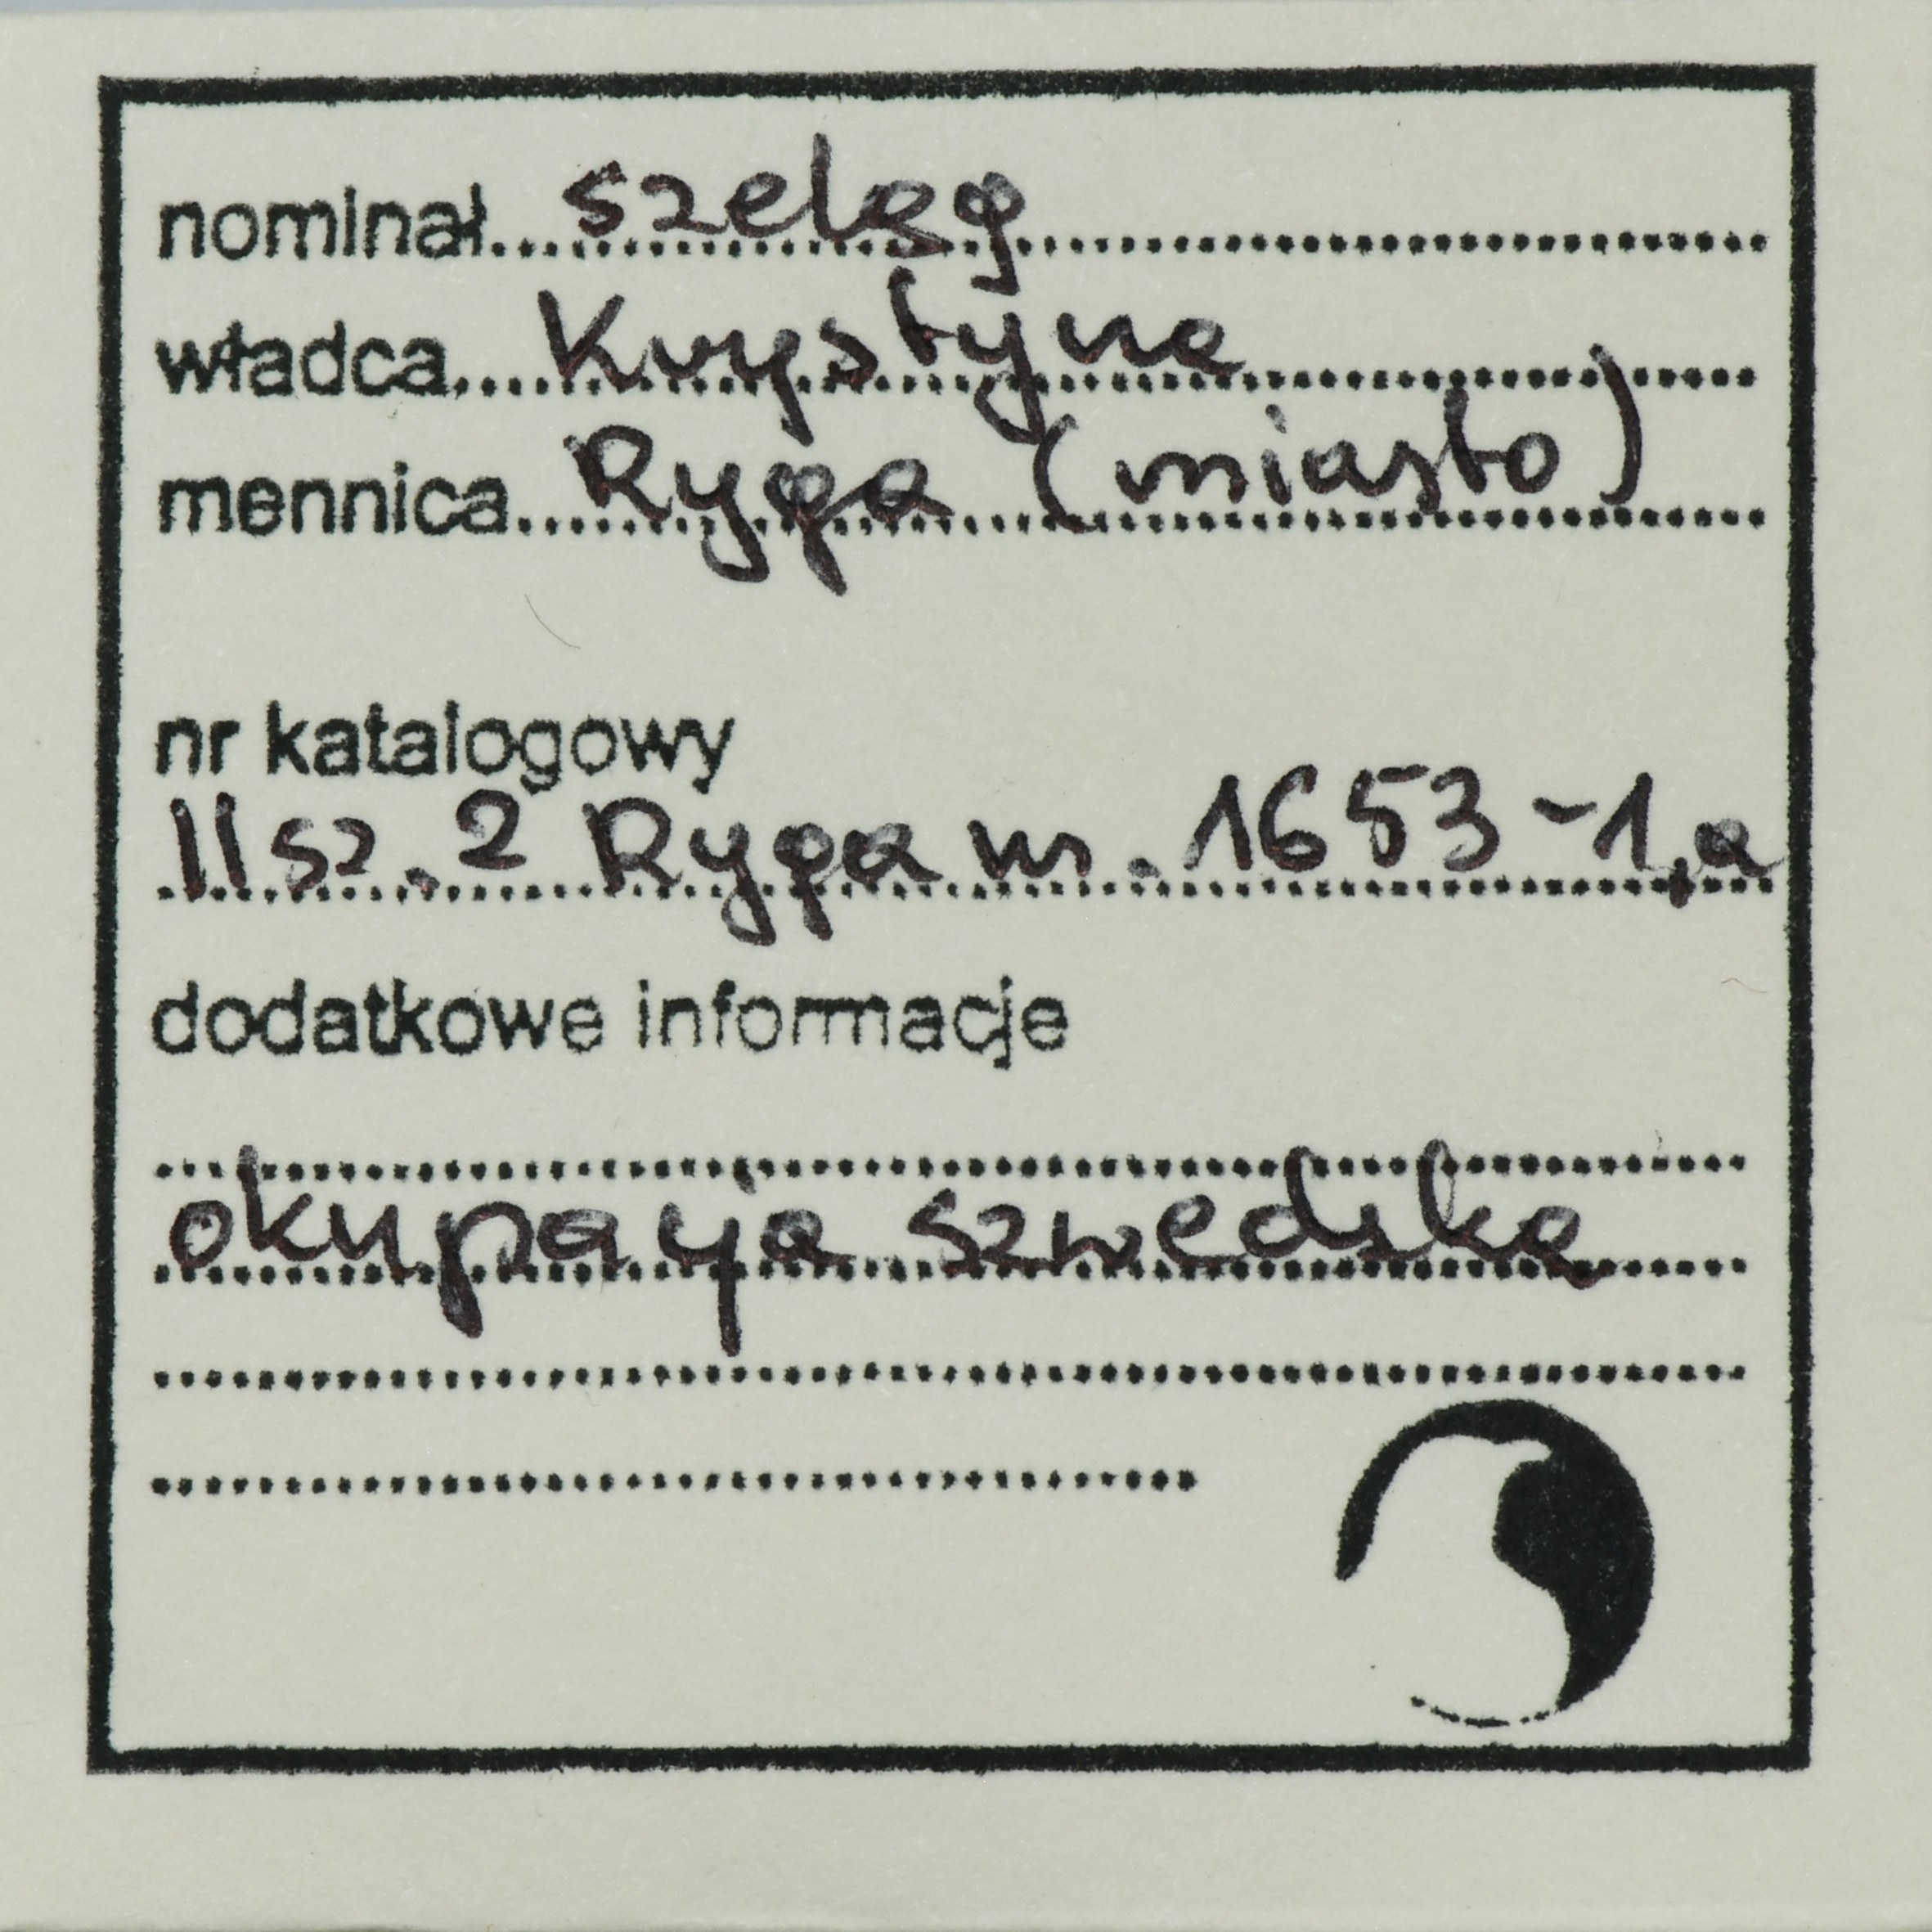 nominał szeląg
władca Krystyna
mennica Ryga (miasto)
nr katalogowy
II sz. 2 Ryga m. 1653-1,a
dodatkowe informacje
okupacja szwedzka